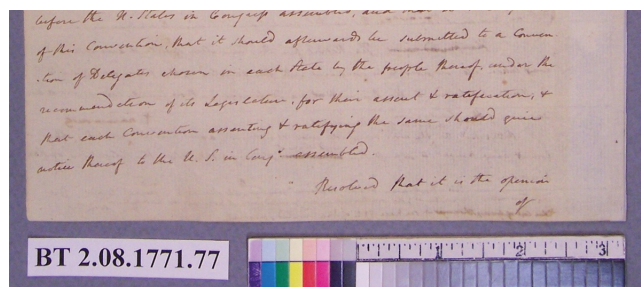 before the U. States in Congress assembled, and
of this Convention, that it should afterwards be submitted to a Conven
-tion of Delegates chosen in each State by the people thereof, under the
recommendation of its Legislature, for their assent & ratification, &
that each Convention assenting & ratifying the same should give
notice thereof to the U. S. in Cong.s assembled.
Resolved that it is the opinion
of
BT 2.08.1771.77
1 2 3